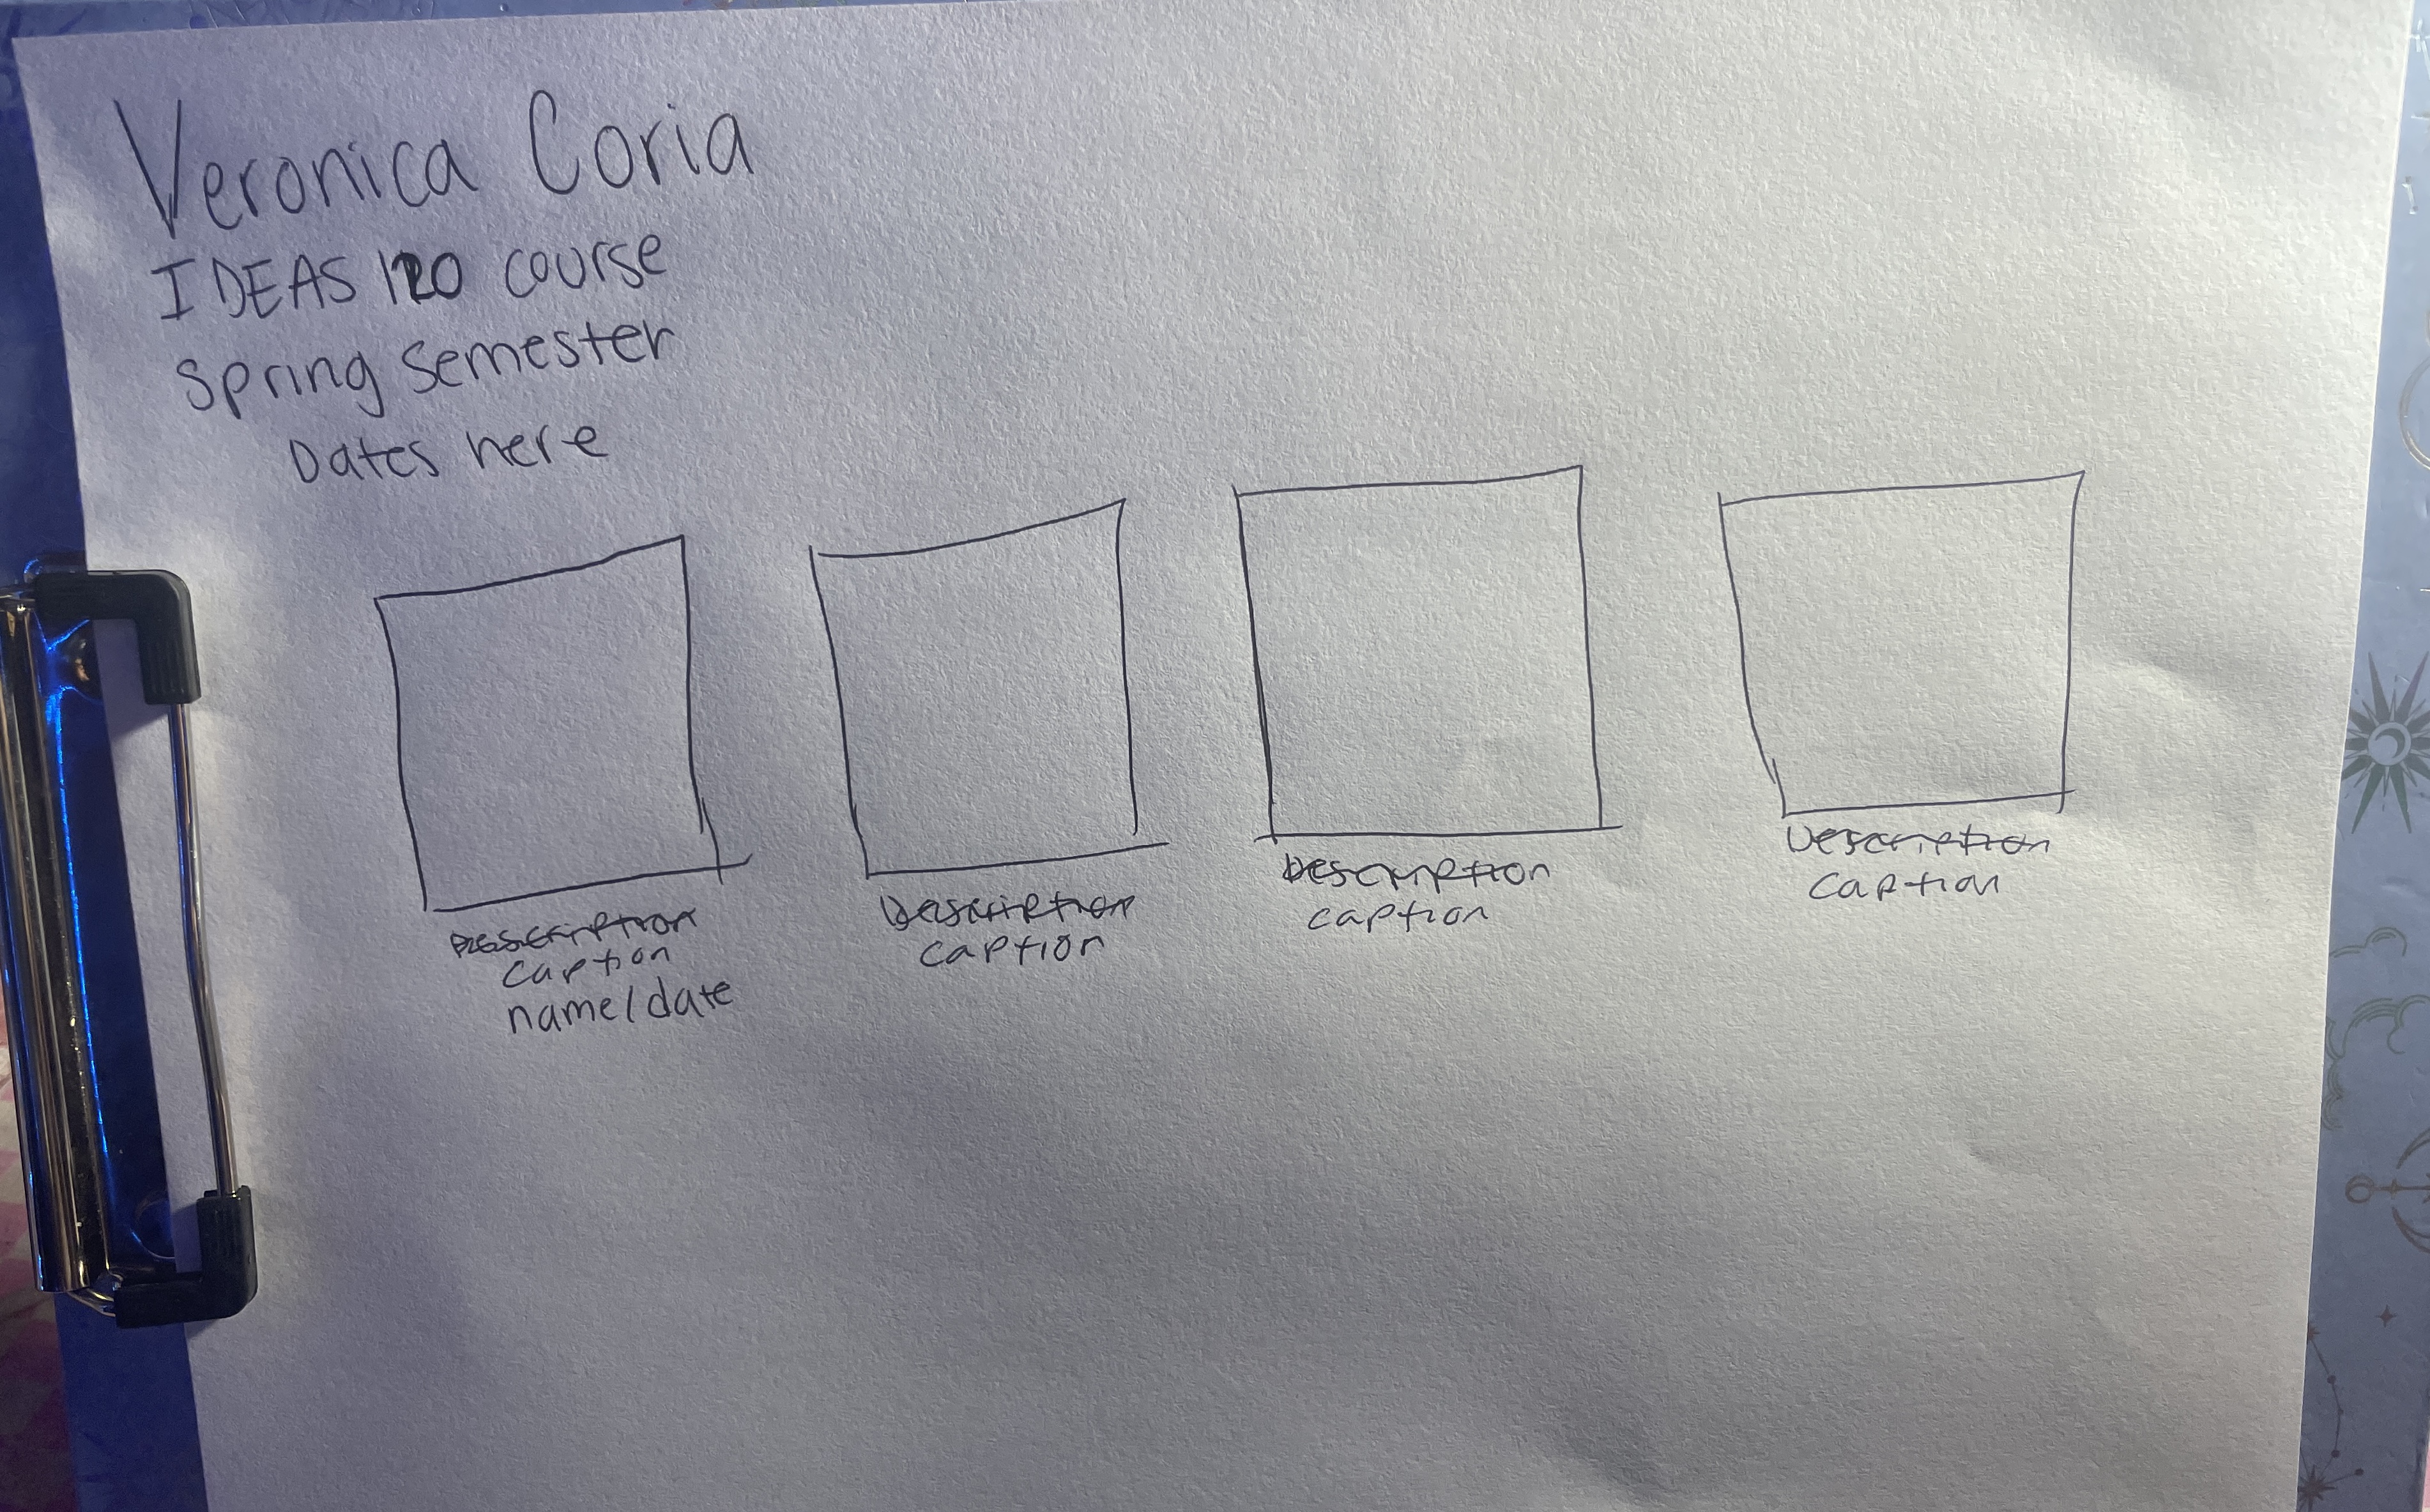 Veronica Coria
IDEAS 120 course
Spring semester
Dates here
Description
caption
name/date
Description
caption
Description
caption
Description
caption